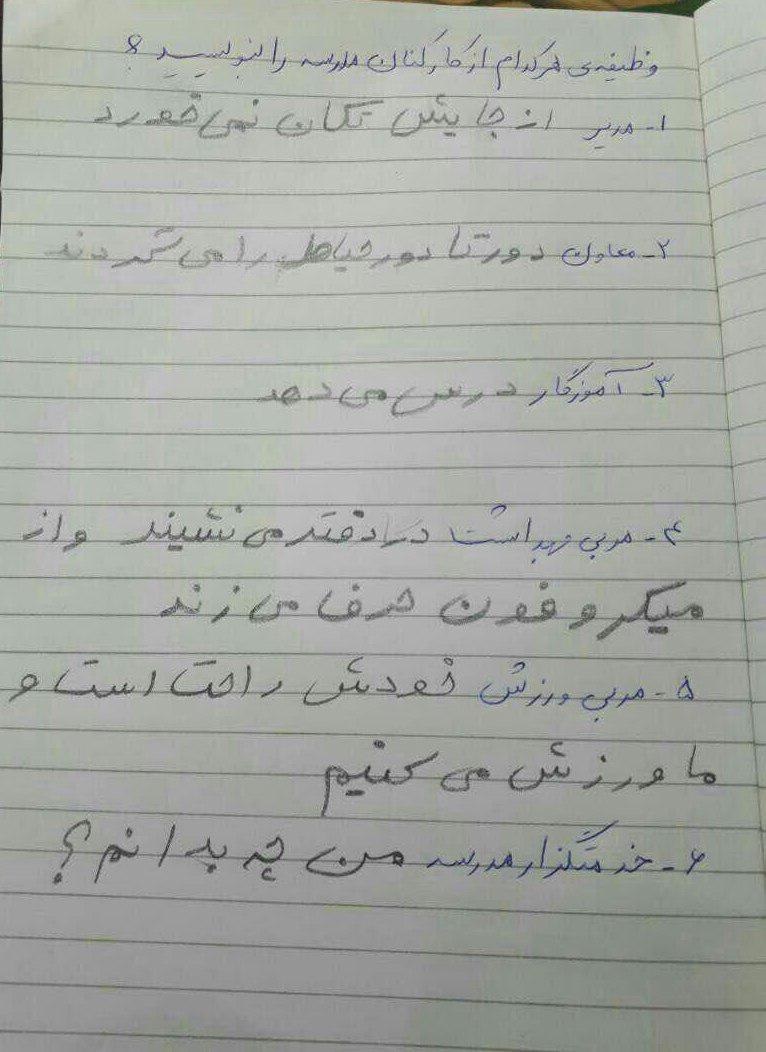 وظیفه‌ی هر کدام از کارکنان مدرسه را بنویسید؟
۱- مدیر از جایش تکان نمی خورد
۲- معاون دور تا دور حیاط را می گردند
۳- آموزگار درس می دهد
۴- مربی بهداشت در دفتر می نشیند و از
میکروفون حرف می زند
۵- مربی ورزش خودش راحت است و
ما ورزش می کنیم
۶- خدمتگزار مدرسه من چه بدانم؟